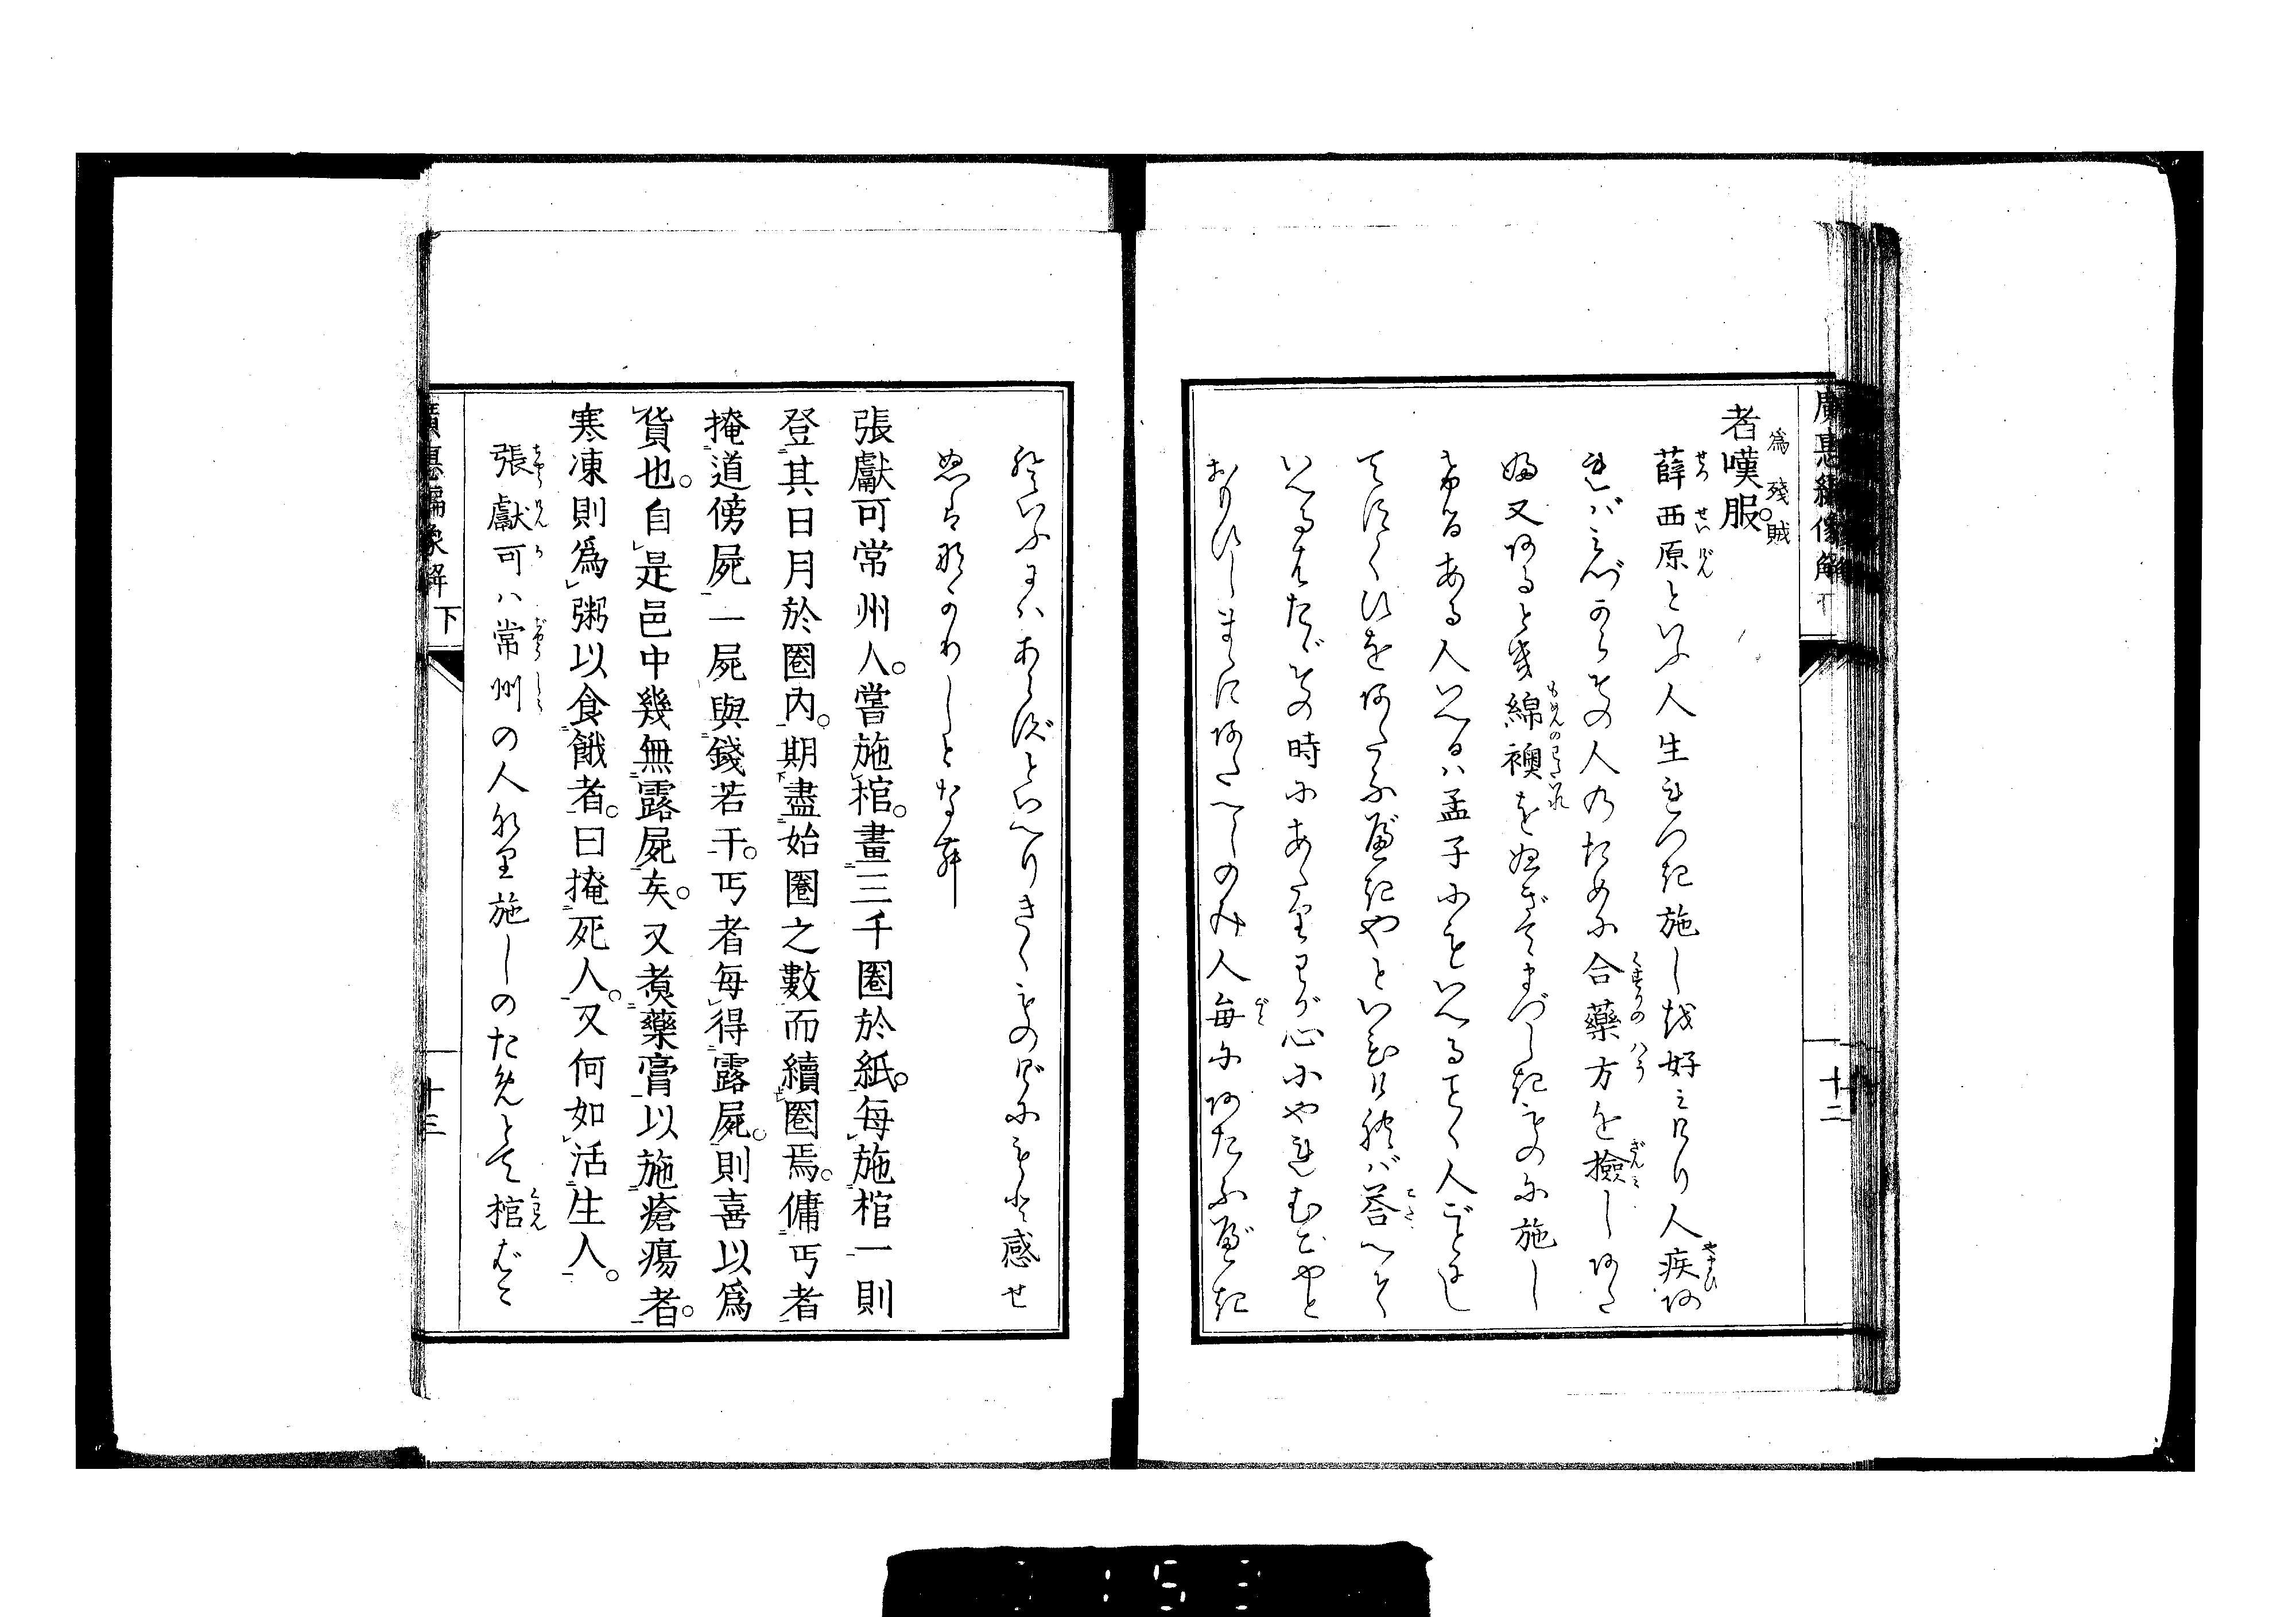 廣惠編像解 下
十二
為殘賊
者嘆服。
薛西原といふ人生れつき施し越好みけり人疾あ
ればみづからその人のために合藥方を撿しあた
ふ又あるとき綿襖をぬぎてまづしきものに施し
けるある人いへるハ孟子にもいへる 人ごとに
あたふべきやといひければ答へて
その時にあたりわが心に
おもひしまゝにあたへしのみ人毎にあたふべき
にハあらずといへりきくもの 感せ
ぬはなかりしとなむ
張獻可常州人。嘗施棺。畫三千圈於紙。每施棺一則
登其日月於圈內。期盡始圈之數而續圈焉。傭丐者
掩道傍屍一屍與錢若干。丐者每得露屍。則喜以爲
貨也。自是邑中幾無露屍矣。又煮藥膏以施瘡瘍者。
寒凍則爲粥以食餓者。曰掩死人。又何如活生人。
張獻可ハ常州の人なり施しのためとて棺
廣惠編像解 下
十三